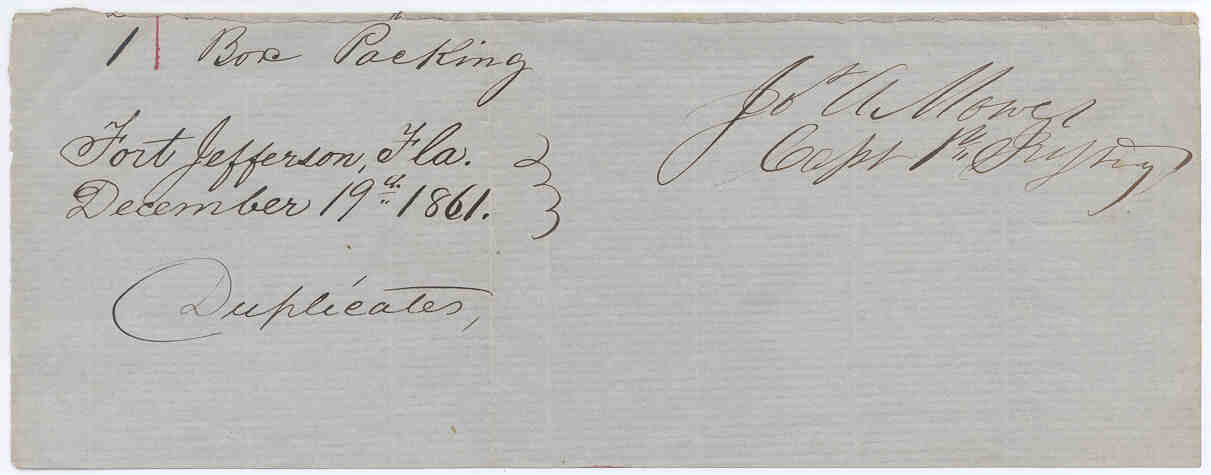 1 Box Packing
Fort Jefferson, Fla.
December 19th 1861.
Duplicates,
Jos A Mower
Capt 1st Infty